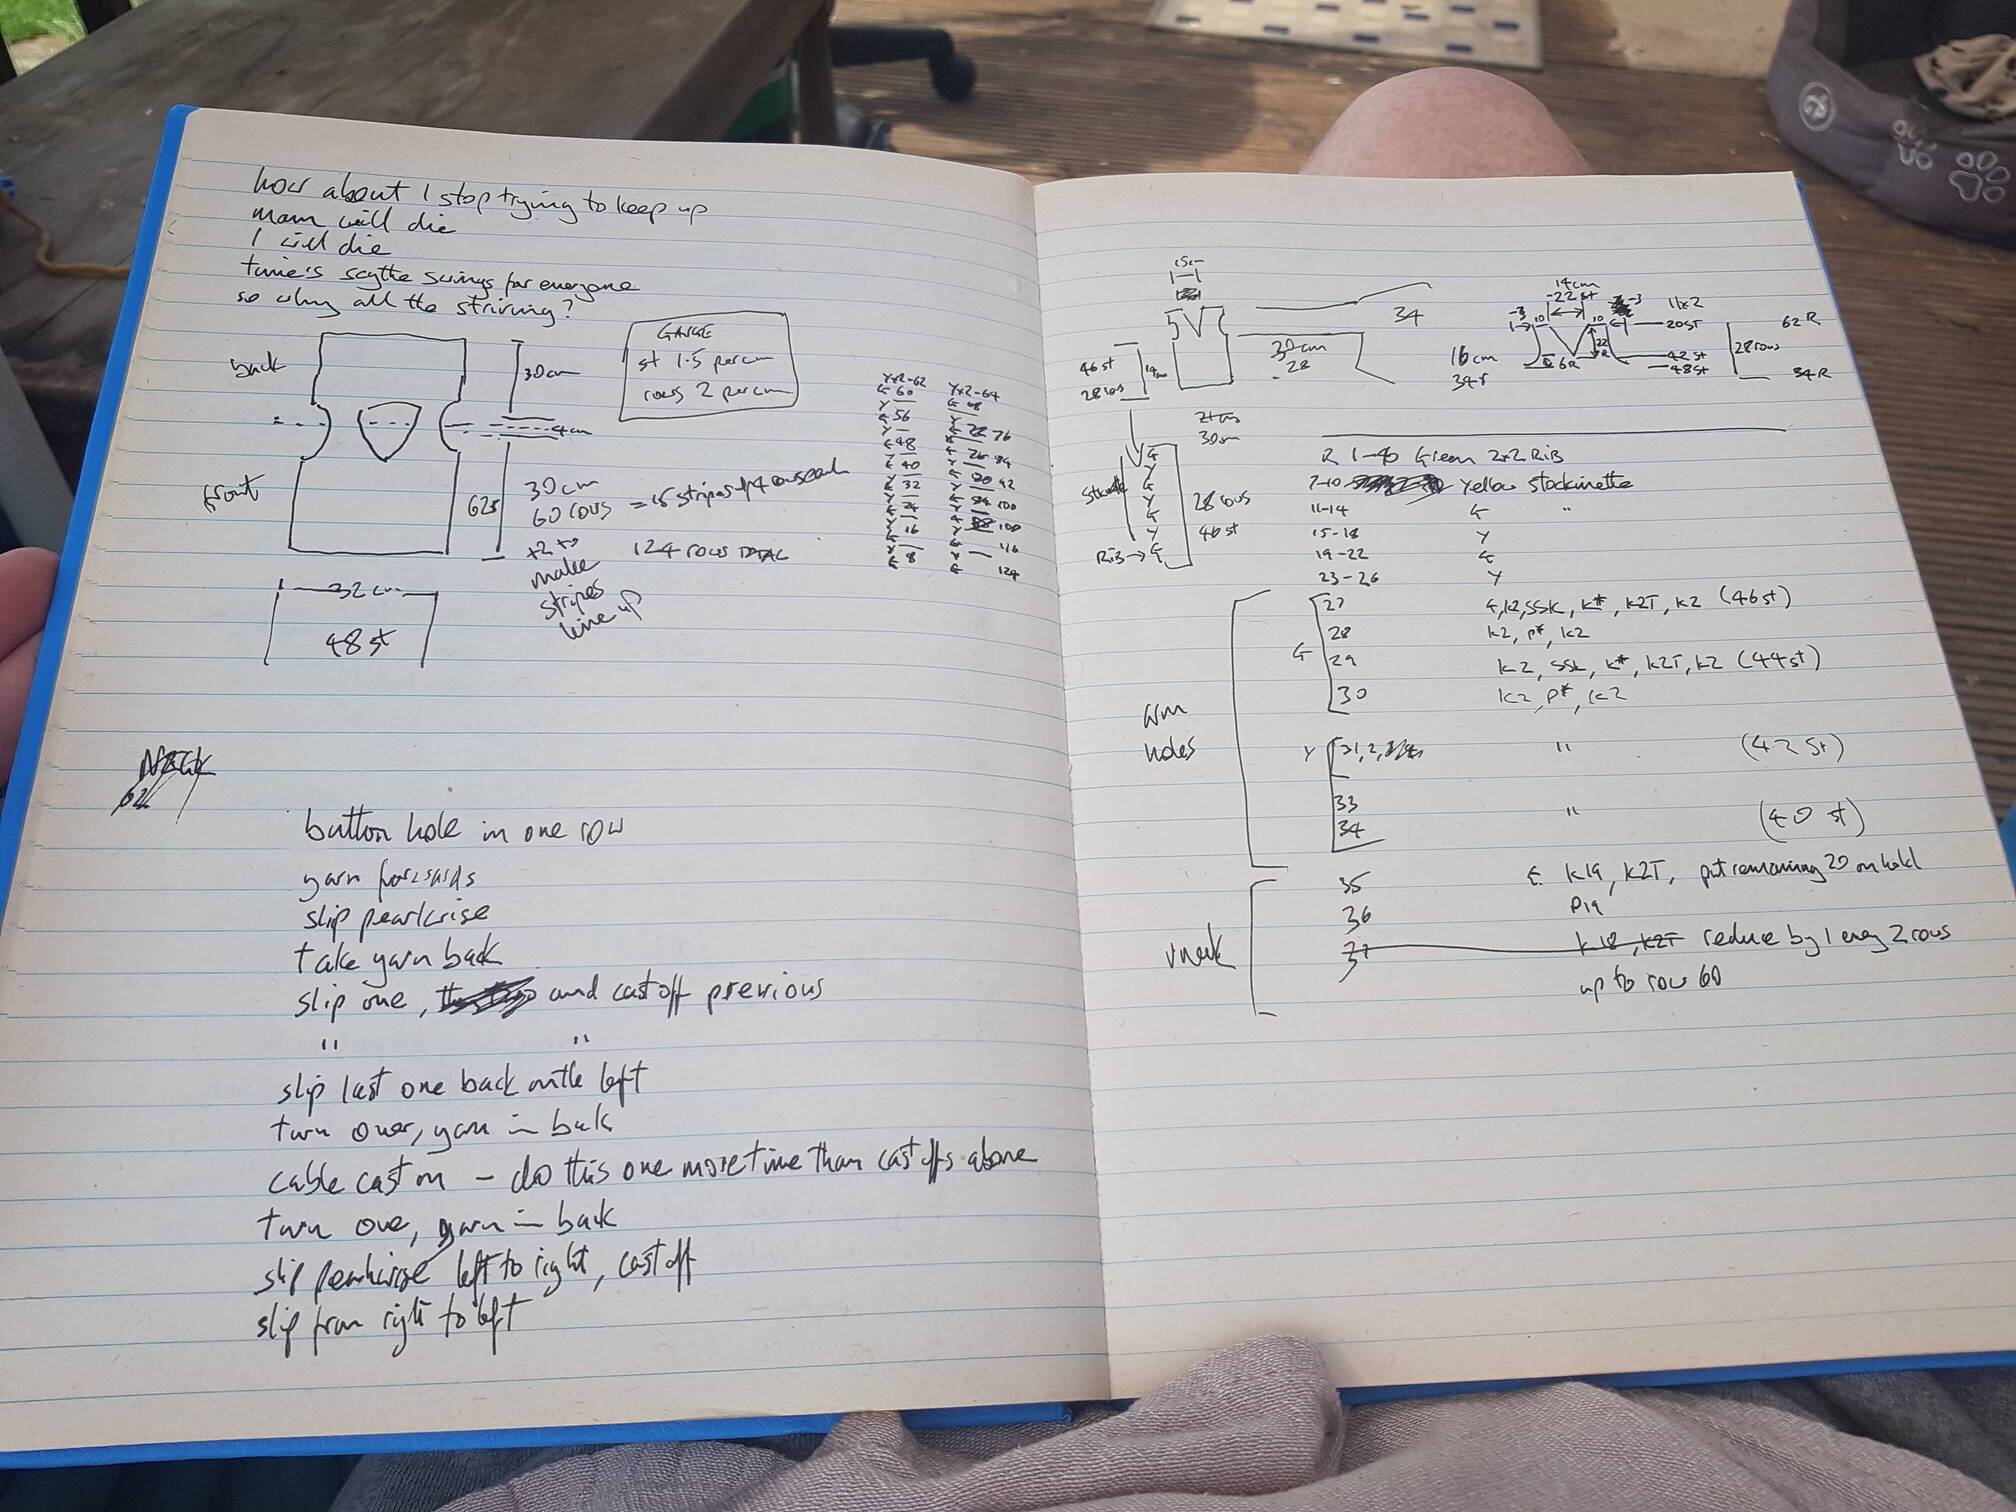 how about I stop trying to keep up
mam will die
I will die
time's scythe swings for everyone
so why all the striving?
back
30cm
GAUGE
st 1.5 per cm
rows 2 per cm
4cm
front
62r
30cm
60 rows = 15 stripes of 4 rows each
+2 to
make
stripes
line up
124 rows TOTAL
32cm
48 st
Yx2-62 Yx2-64
G 60
G 56
G 48
40
32
16
8
124
button hole in one row
yarn forwards
slip pearlwise
take yarn back
slip one, and cast off previous
" "
slip last one back onto left
turn over, yarn in back
cable cast on - do this one more time than cast offs above
turn over, yarn in back
slip pearlwise left to right, cast off
slip from right to left
34
46 st
28 rows
30cm
28
14cm
-22 st
-3
10
10
-3
11x2
20st
62R
28 rows
22
R
6R
42st
48st
34R
16cm
34r
30cm
G
Y
G
Y
G
Y
RiB → G
28 rows
46 st
R 1-40 Green 2x2 RiB
7-10 Yellow stockinette
11-14 G "
15-18 Y
19-22 G
23-26 Y
arm
holes
G
27 G, k2, SSK, k*, K2T, k2 (46st)
28 k2, p*, k2
29 k2, SSK, k*, K2T, k2 (44st)
30 k2, p*, k2
Y 31, 2, " (42 st)
33
34 " (40 st)
vneck
35 G k19, k2T, put remaining 20 on hold
36 P19
37 k18, k2T reduce by 1 every 2 rows
up to row 60